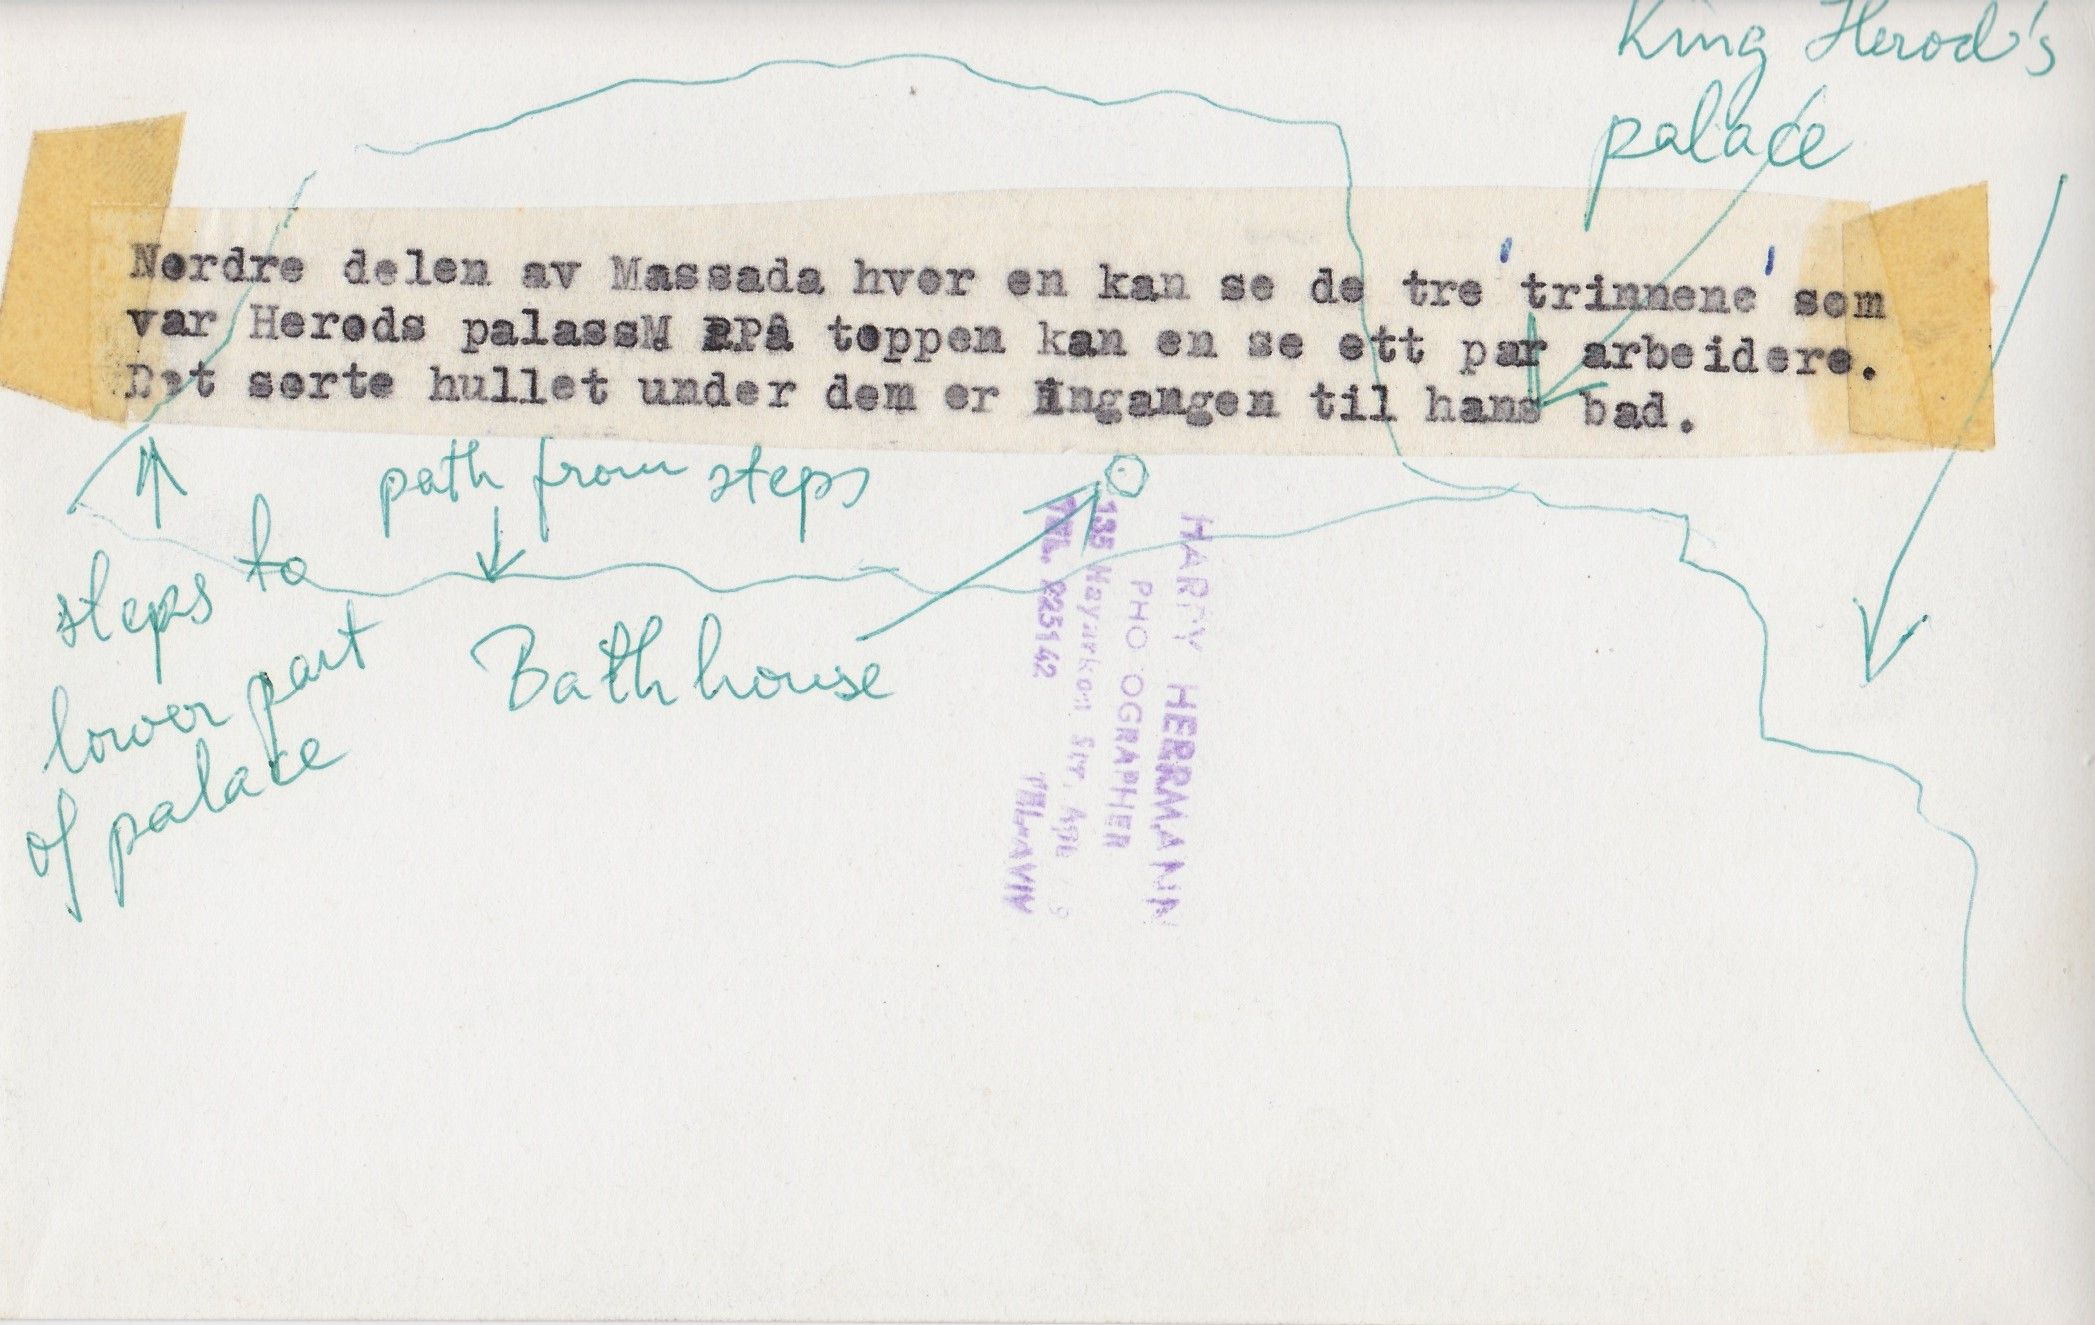 King Herod's
palace
Nordre delen av Massada hvor en kan se de tre 'trinnene' som
var Herods palass. På toppen kan en se ett par arbeidere.
Det sorte hullet under dem er ingangen til hans bad.
path from steps
steps to
lower part
of palace
Bathhouse
HARRY HERRMANN
PHOTOGRAPHER
135 Hayarkon Str., App.
TEL. 225142
TEL-AVIV